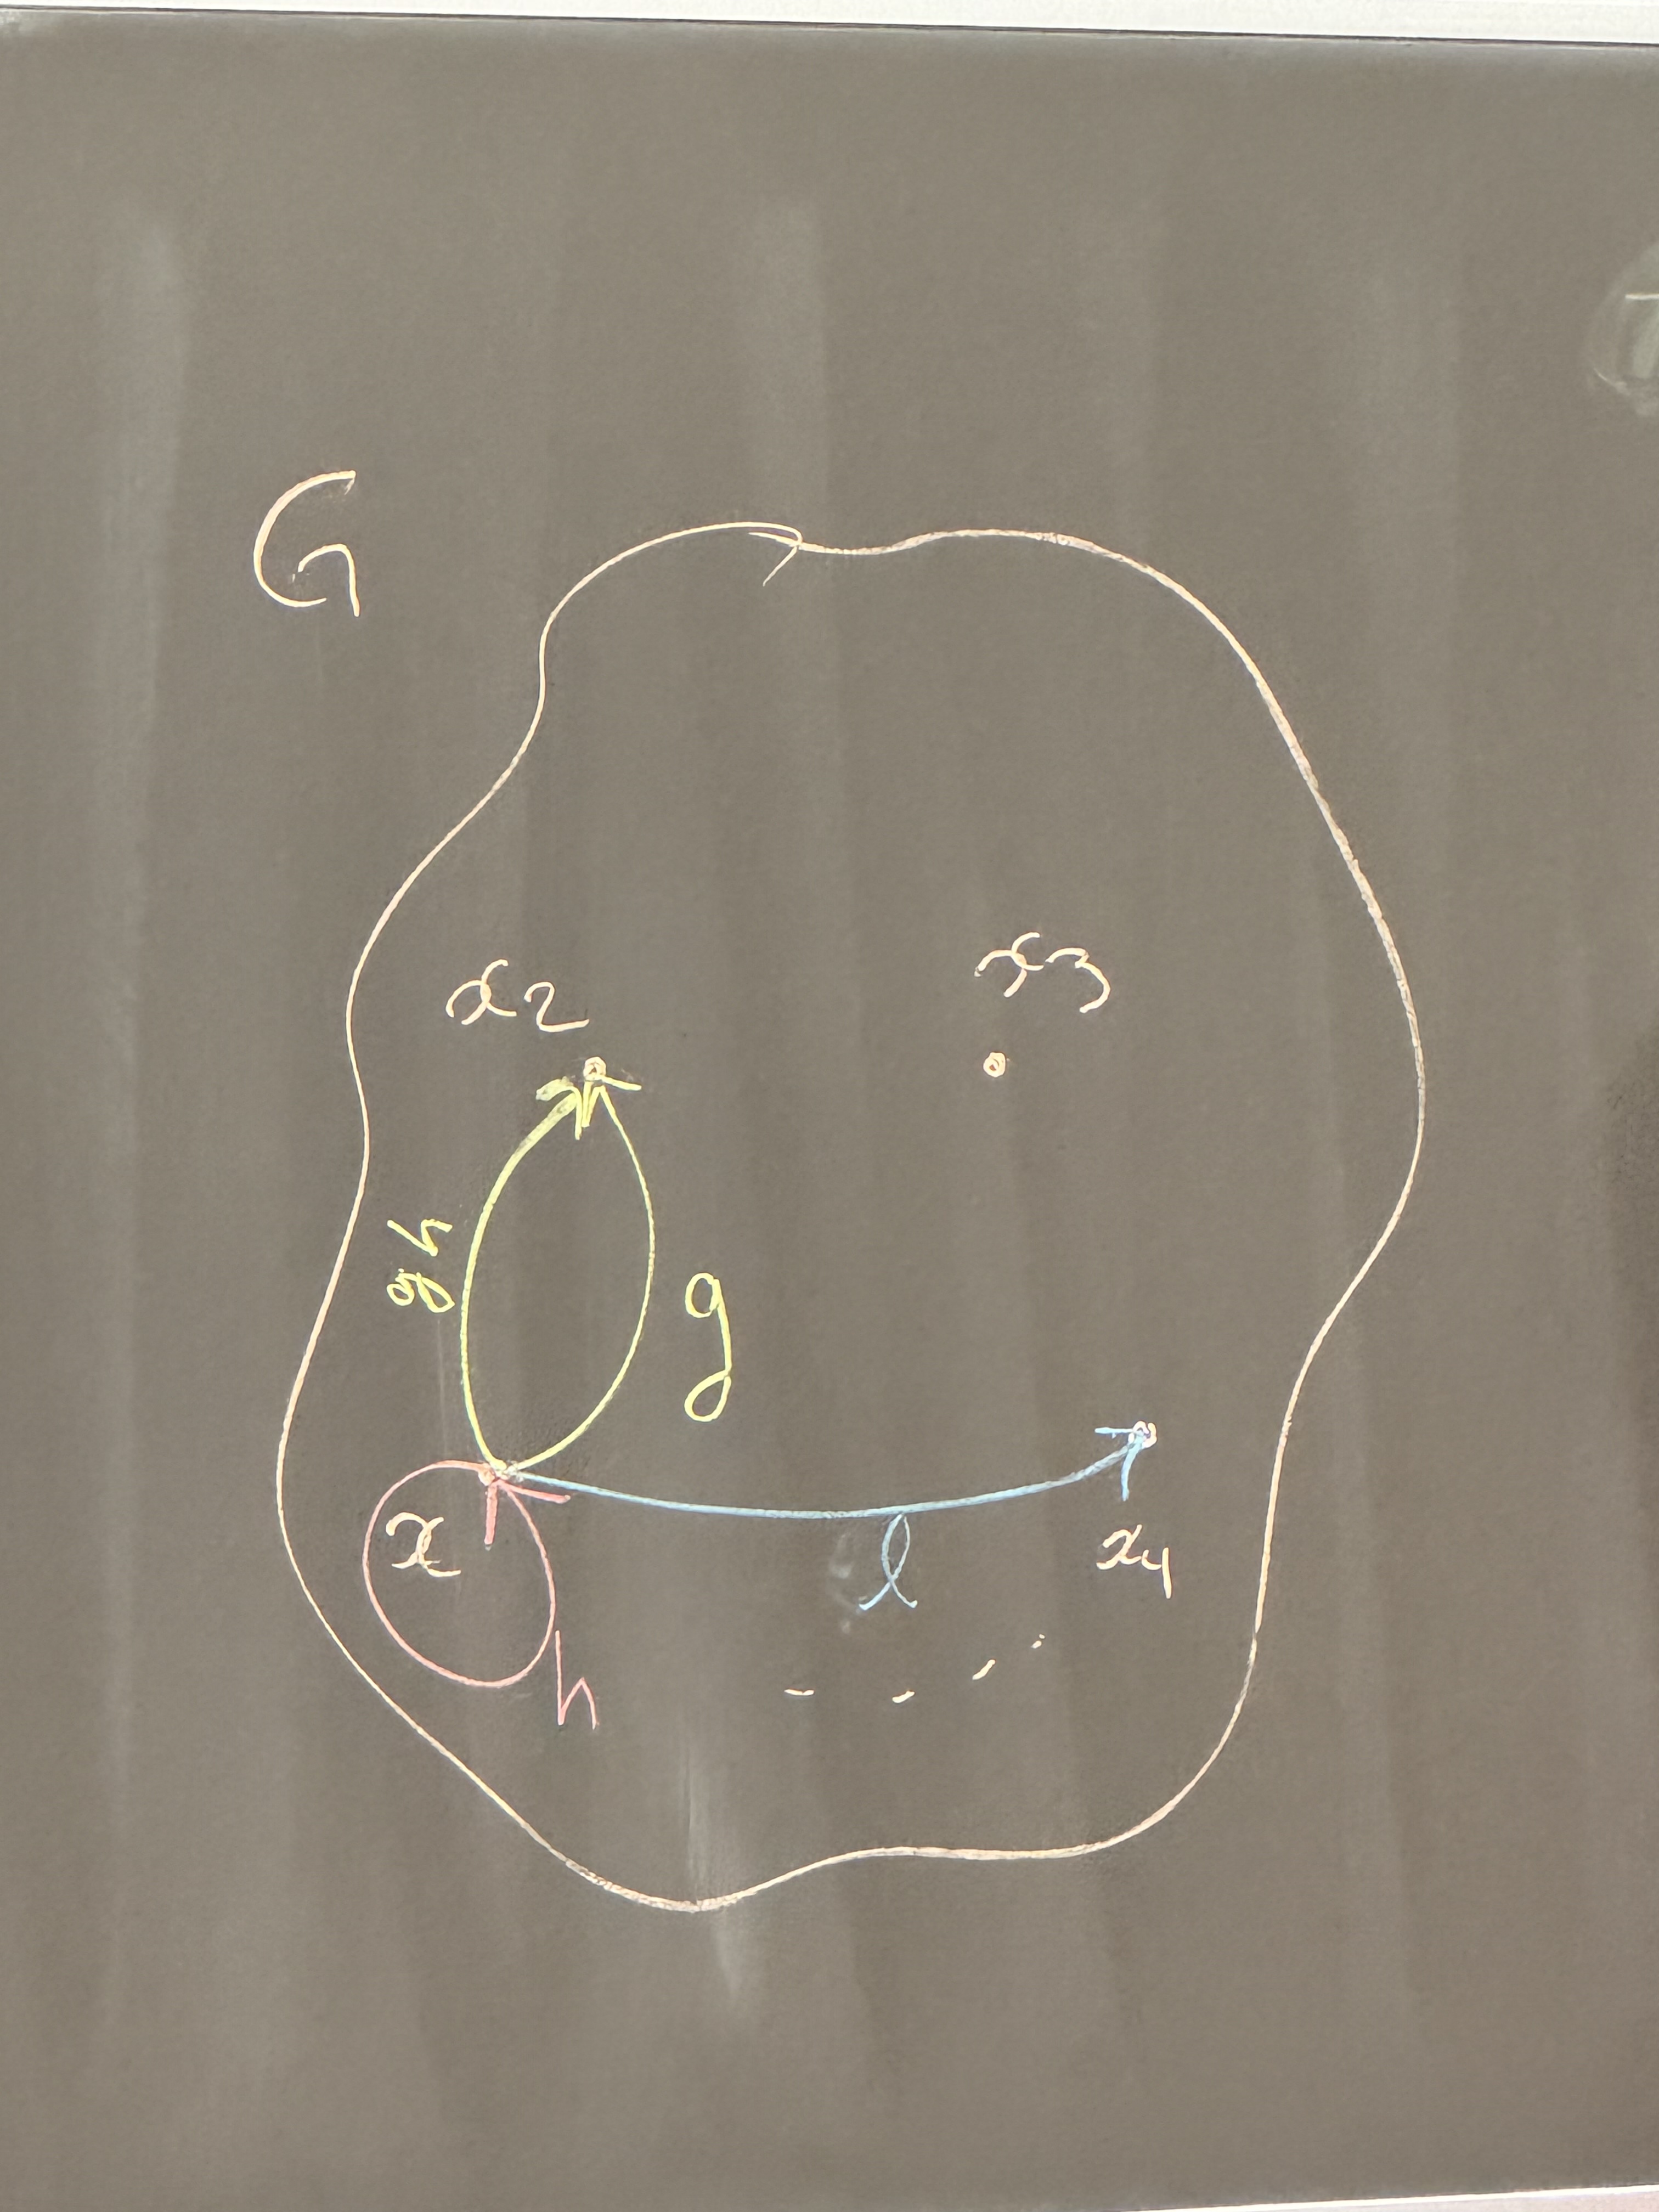 G
x2
x3
gh
g
x
l
x4
h